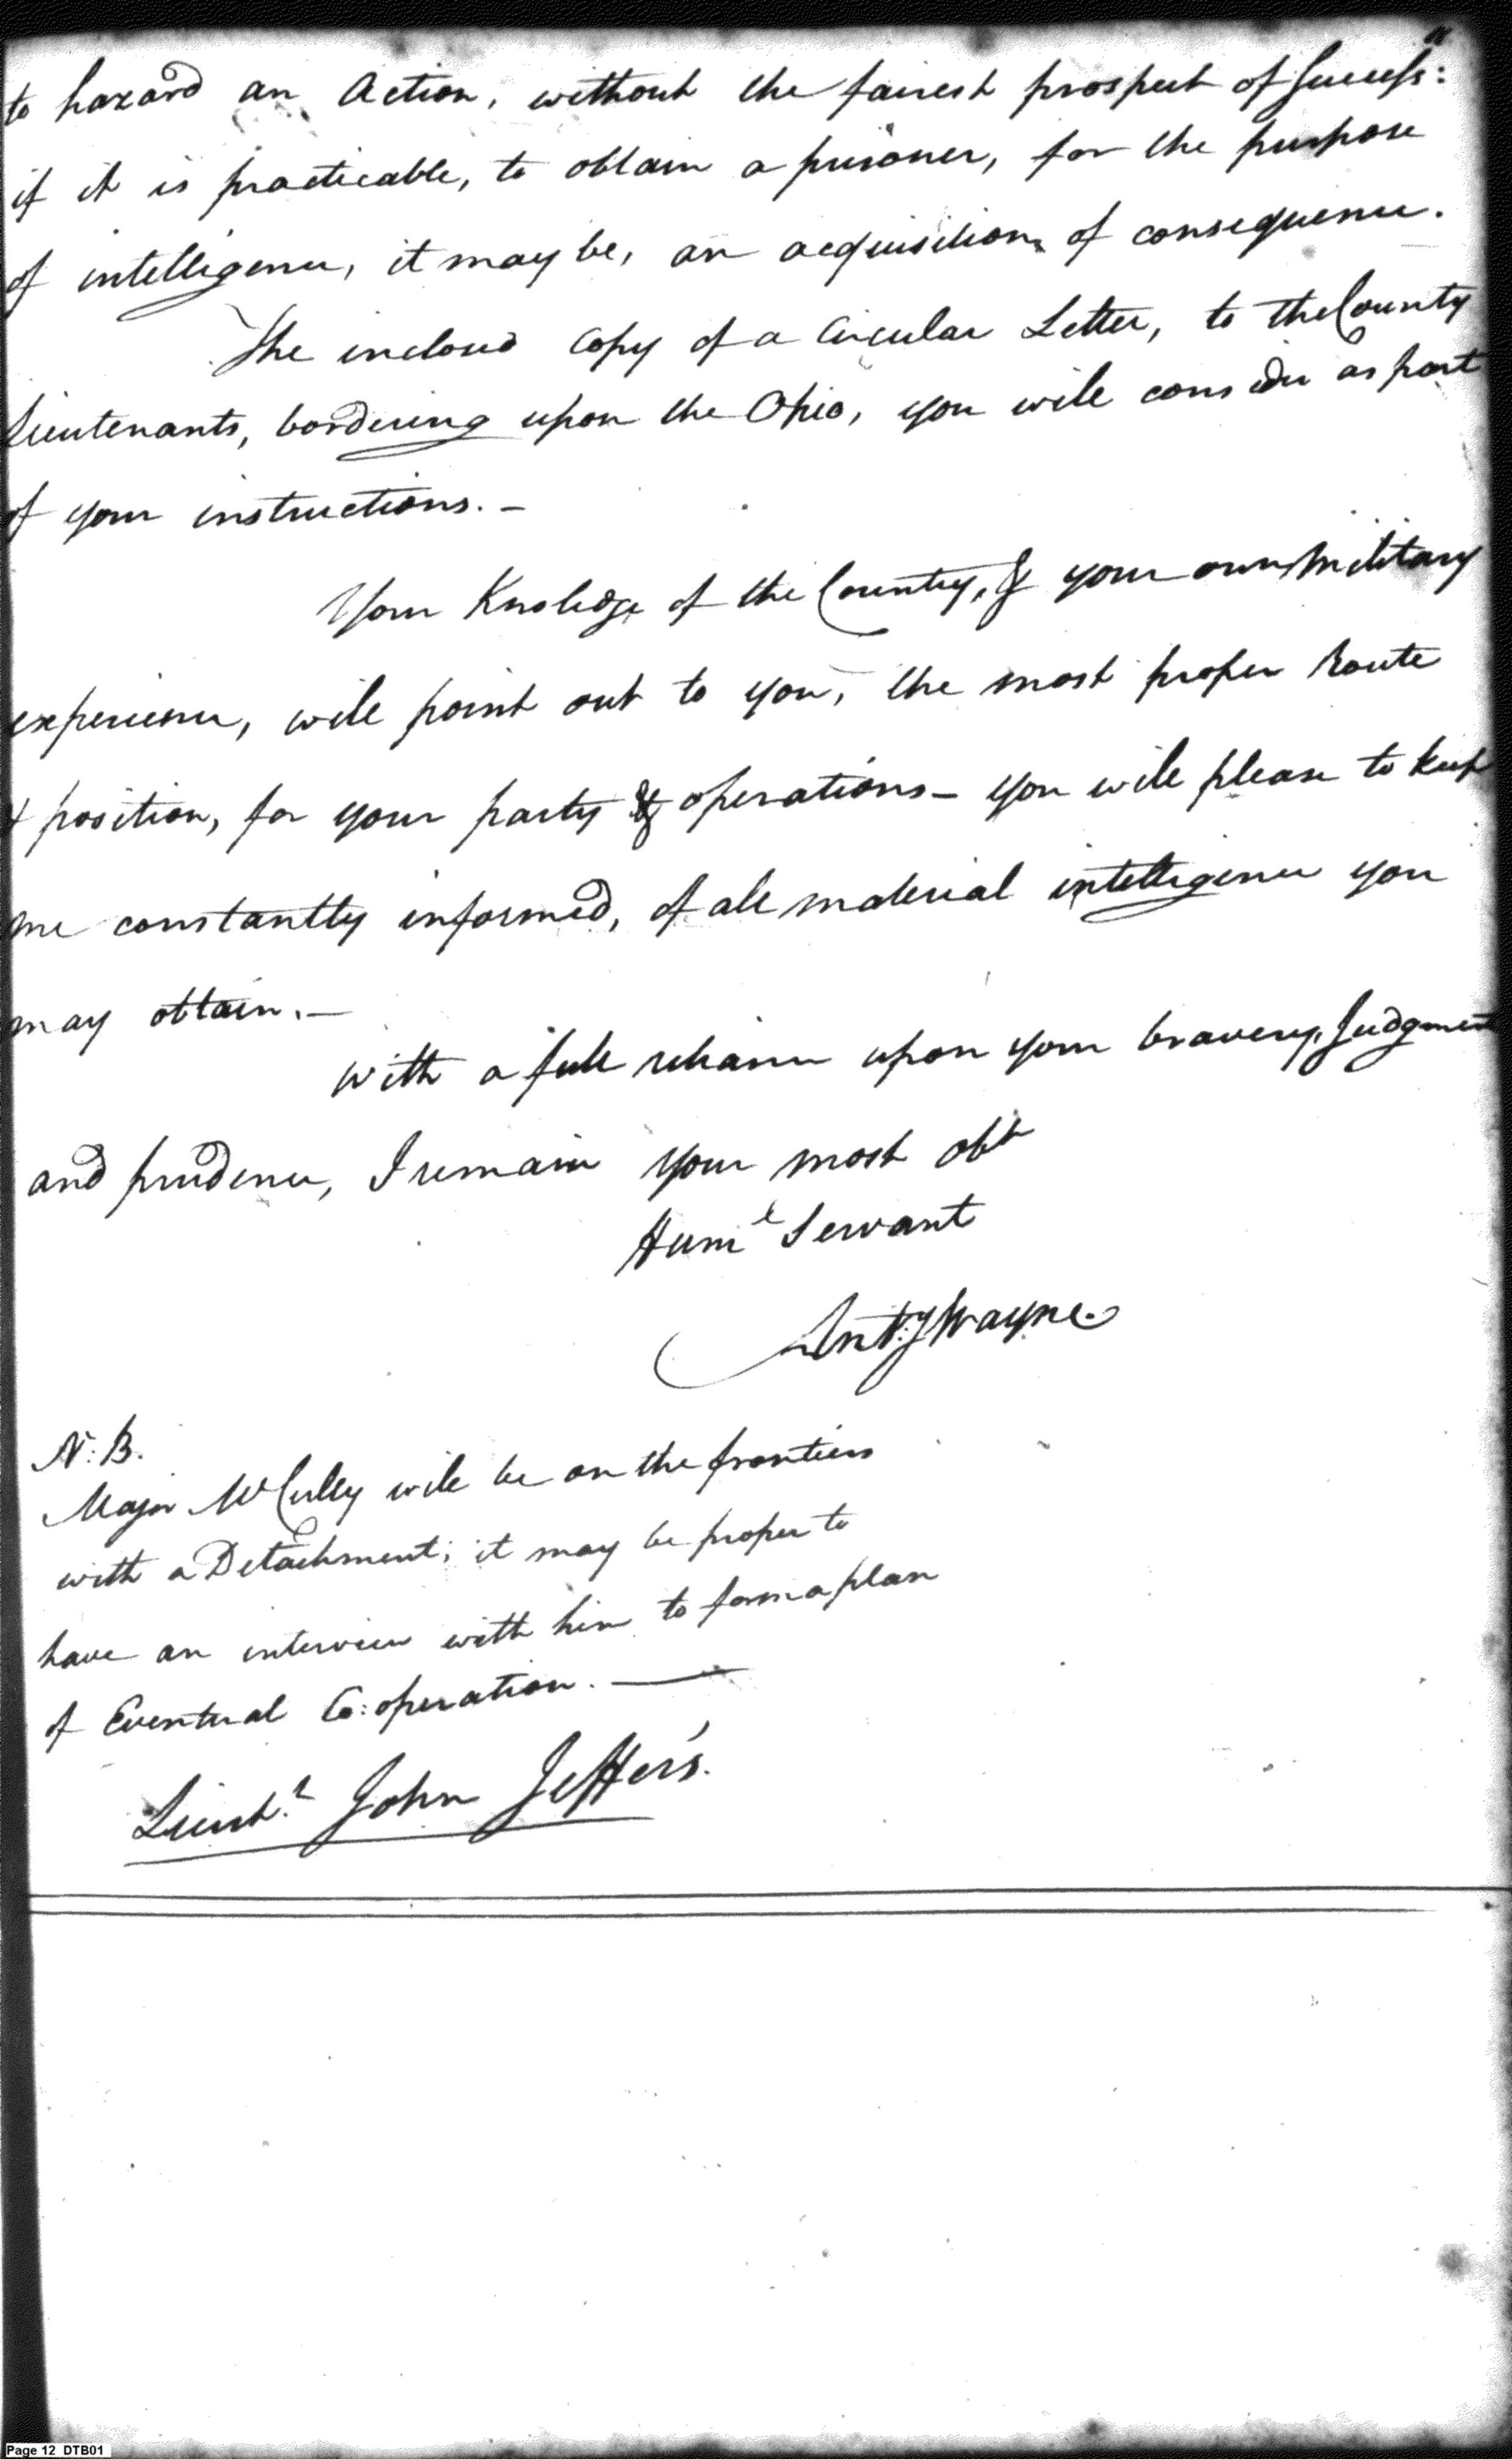 to hazard an Action, without the fairest prospect of Success:
if it is practicable, to obtain a prisoner, for the purpose
of intelligence, it may be, an acquisition of consequence.
The inclosed Copy of a Circular Letter, to the County
Lieutenants, bordering upon the Ohio, you will consider as part
of your instructions. –
Your Knoledge of the Country, & your own Military
experience, will point out to you, the most proper Route
& position, for your party & operations – you will please to keep
me constantly informed, of all material intelligence you
may obtain. –
with a full reliance upon your bravery, Judgment
and prudence, I remain your most obt
Humle Servant
Anty Wayne.
N:B.
Major McCulley will be on the frontiers
with a Detachment; it may be proper to
have an interview with him to form a plan
of Eventual Co:operation. —
Lieut.t John Jeffers.
Page 12 DTB01